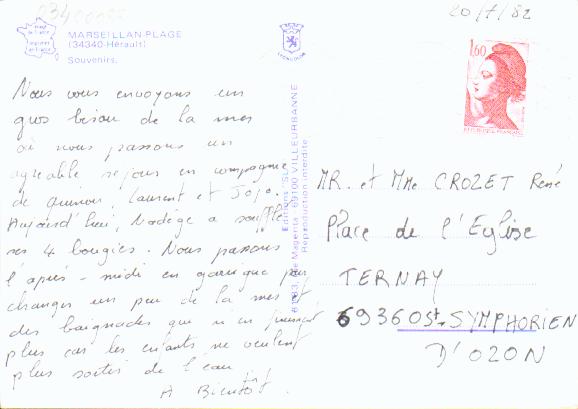 20/7/82
MARSEILLAN-PLAGE
(34340-Hérault)
Souvenirs.
LION
1,60
REPUBLIQUE FRANCAISE
Nous vous envoyons un
gros bisou de la mer
où nous passons un
agréable séjour en compagnie
de Laurent et Jojo.
Aujourd'hui, Nadège a soufflé
ses 4 bougies. Nous passons
l'après-midi en garrigue pour
changer un peu de la mer et
des baignades qui n'en
plus car les enfants ne veulent
plus sortir de l'eau
A Bientôt.
Editions "SL"
Rue Magenta - 69100 VILLEURBANNE
Reproduction interdite
MR. et Mme CROZET René
Place de l'Eglise
TERNAY
69360 St. SYMPHORIEN
D'OZON